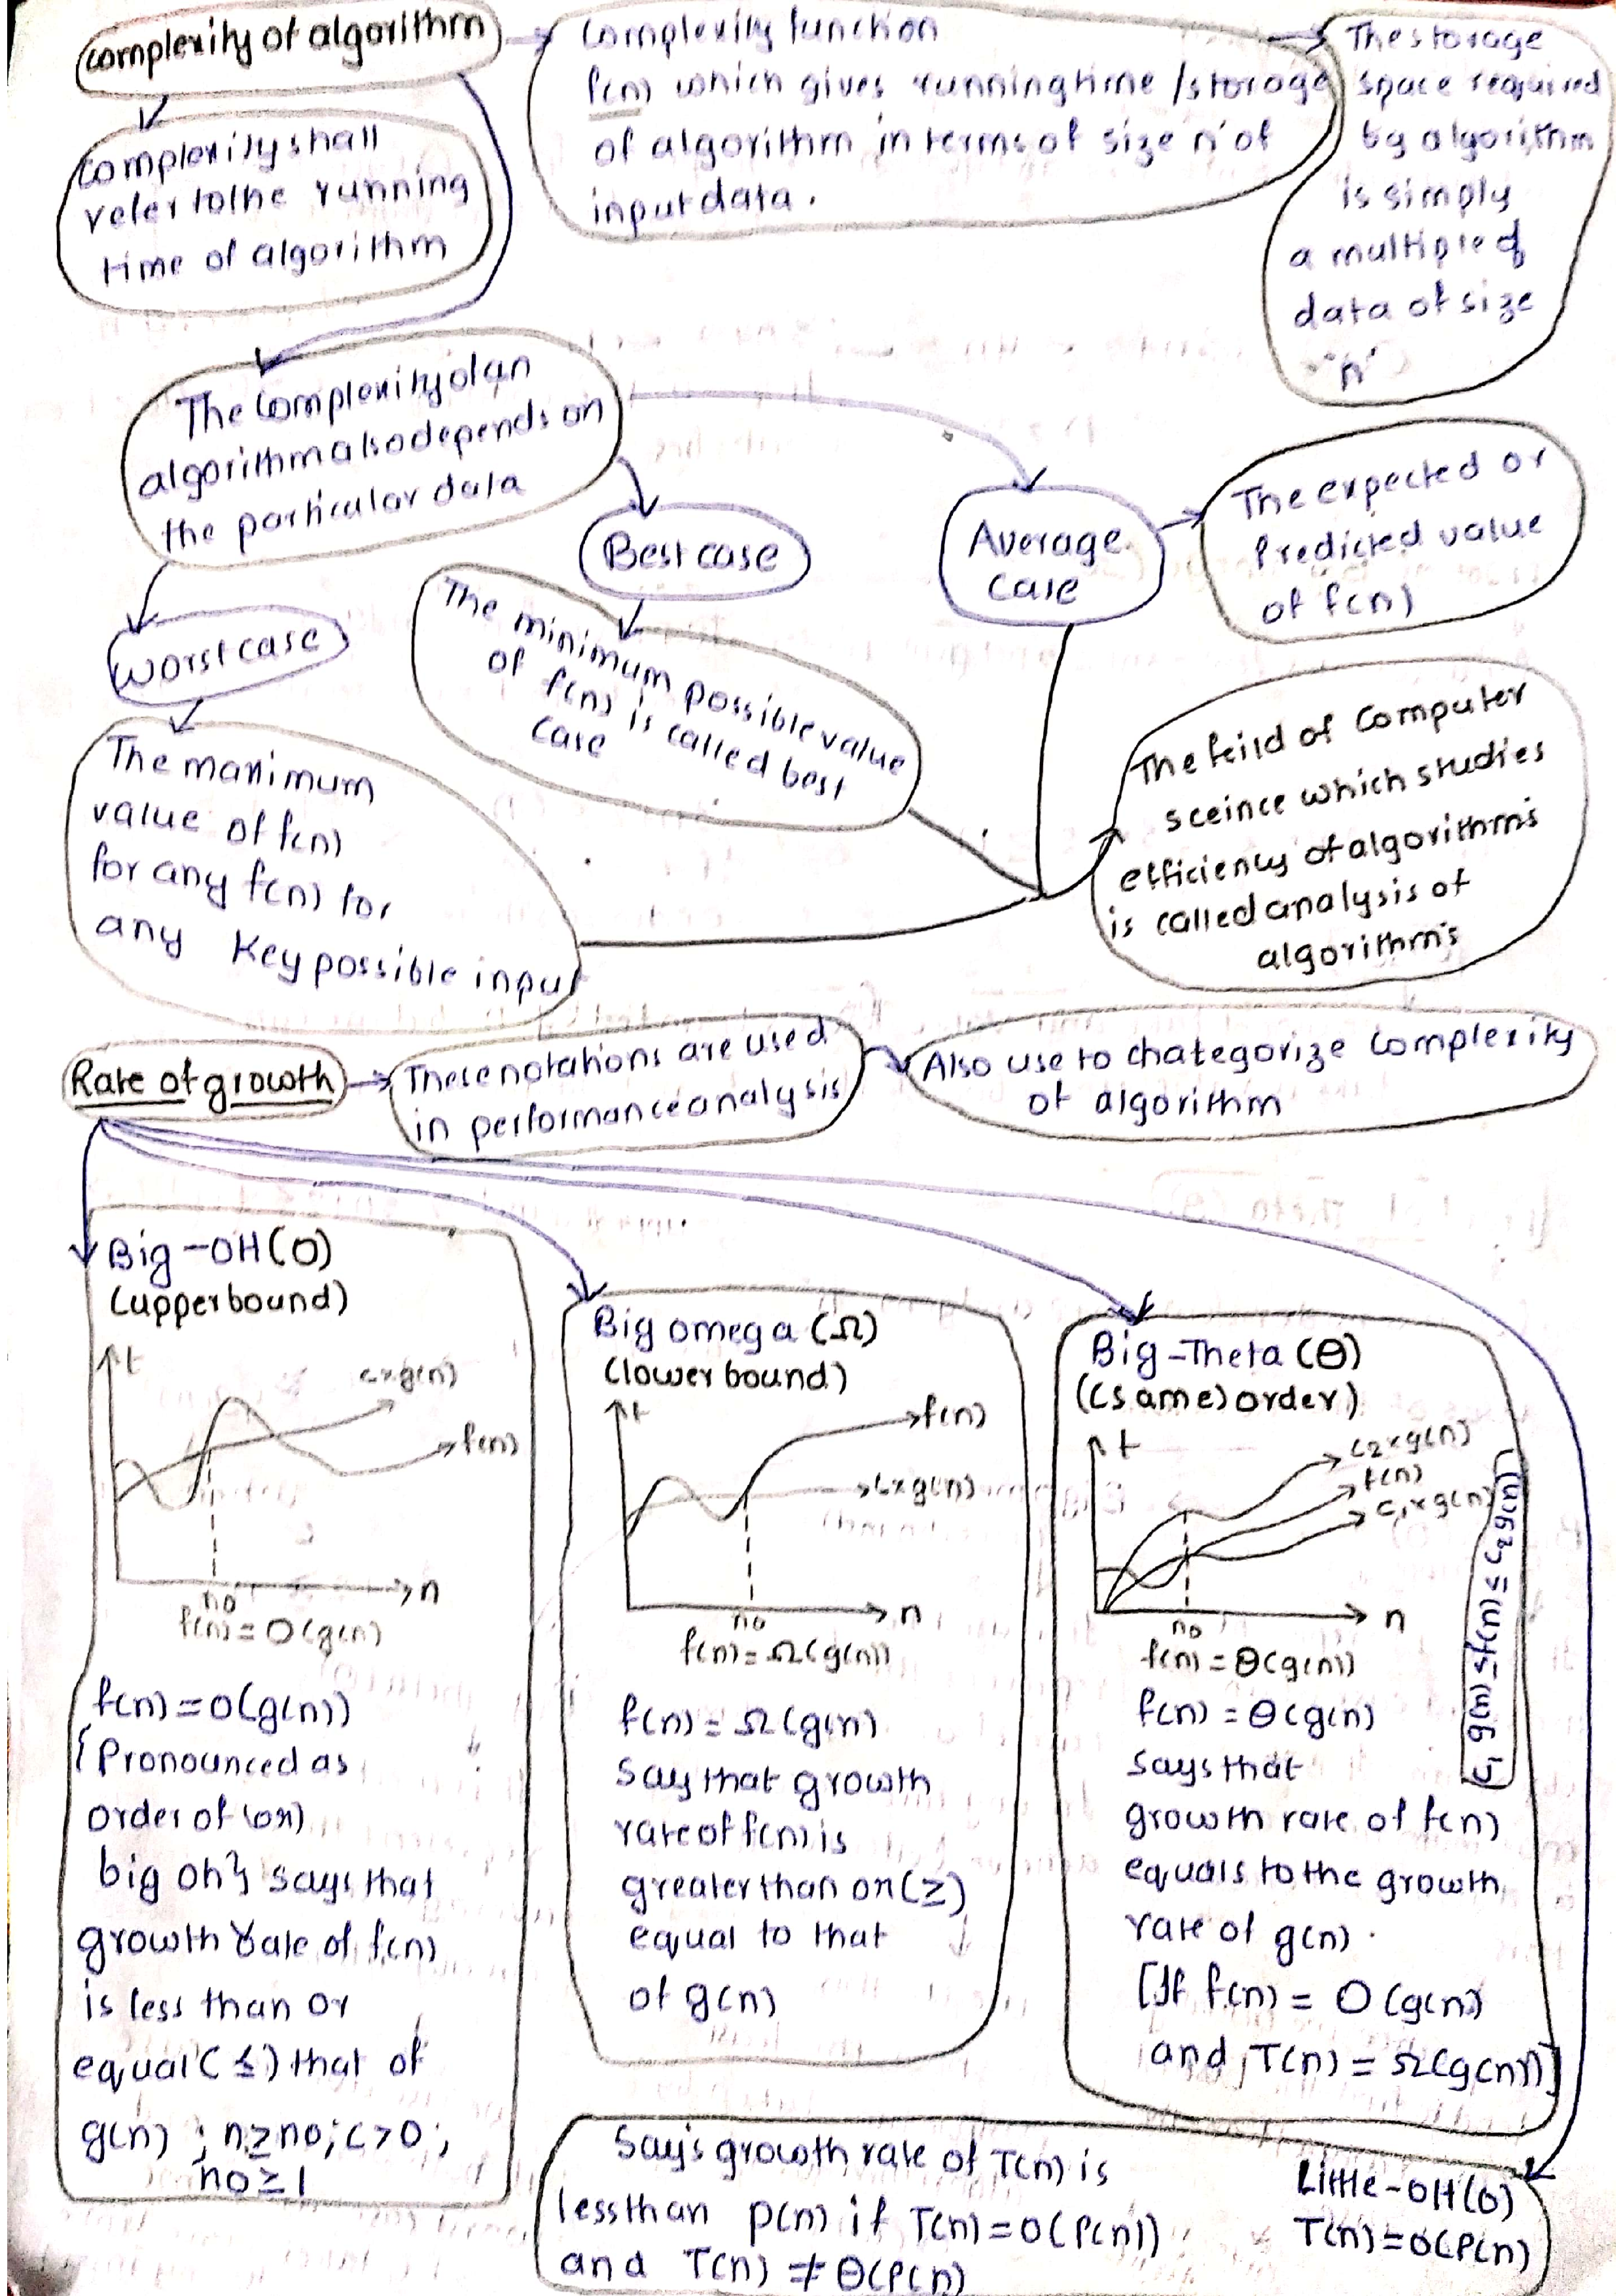 complexity of algorithm
complexity function
f(n) which gives running time / storage
of algorithm in terms of size n' of
input data.
The storage
space required
by algorithm
is simply
a multiple of
data of size
"n"
complexity shall
refer to the running
time of algorithm
The complexity of an
algorithm also depends on
the particular data
Best case
Average
case
The expected or
Predicted value
of f(n)
worst case
The minimum possible value
of f(n) is called best
case
The maximum
value of f(n)
for any f(n) for
any key possible input
The feild of computer
sceince which studies
efficiency of algorithm's
is called analysis of
algorithm's
Rate of growth
These notations are used
in performance analysis
Also use to chategorize complexity
of algorithm
Big-OH(O)
(upper bound)
t
c×g(n)
f(n)
n
n0
f(n) = O(g(n)
f(n) = O(g(n))
{Pronounced as
order of (or)
big oh} says that
growth rate of f(n)
is less than or
equal (≤) that of
g(n) ; n≥n0; c>0;
n0≥1
Big omega (Ω)
(lower bound)
t
f(n)
c×g(n)
n
n0
f(n) = Ω(g(n))
f(n) = Ω(g(n)
Say that growth
rate of f(n) is
greater than or (≥)
equal to that
of g(n)
Big-Theta (Θ)
((same) order)
t
c2×g(n)
f(n)
c1×g(n)
n
n0
f(n) = Θ(g(n))
c1 g(n) ≤ f(n) ≤ c2 g(n)
f(n) = Θ(g(n)
Says that
growth rate of f(n)
equals to the growth
rate of g(n).
[If f(n) = O(g(n)
and T(n) = Ω(g(n))]
Little-OH(o)
T(n)=o(P(n)
Say's growth rate of T(n) is
less than p(n) if T(n)=O(P(n))
and T(n) ≠ Θ(P(n)